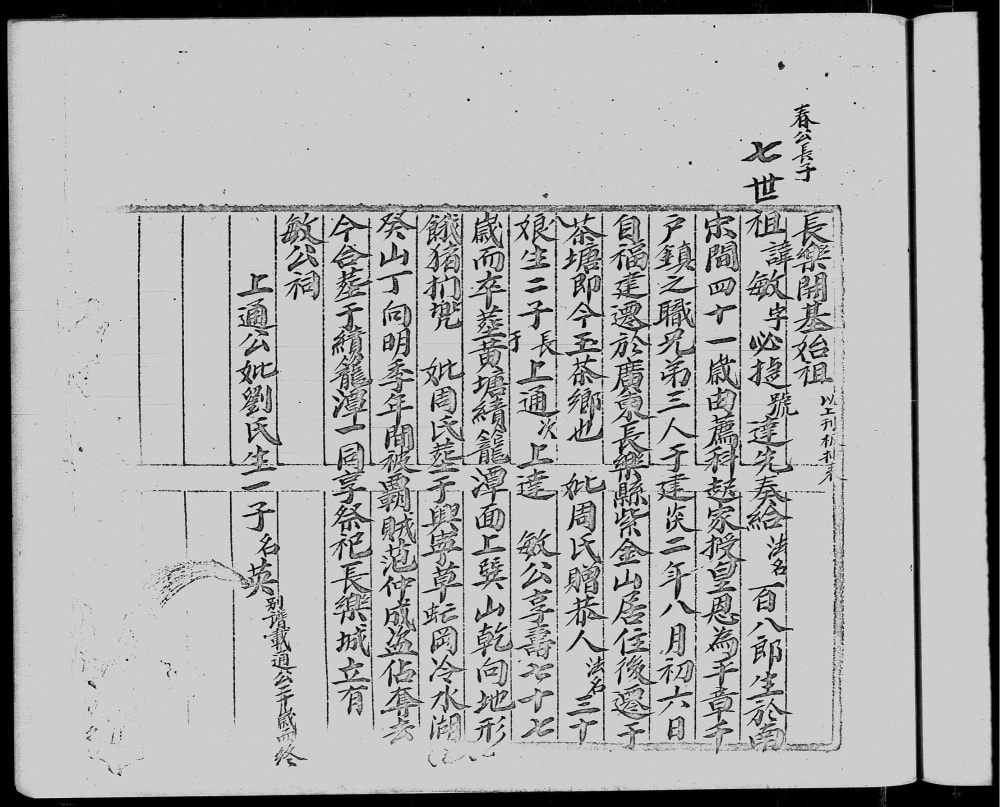 春公長子
七世
長樂開基始祖
祖諱敏字必捷號達先奏給法名百八郎生於南
宋間四十一歲由薦科起家授皇恩為平章千
户鎮之職兄弟三人于建炎二年八月初六日
自福建遷於廣東長樂縣紫金山居住後遷于
茶塘即今玉茶鄉也 妣周氏贈恭人法名三十
娘生二子長上通次上達 敏公享壽七十七
歲而卒塟黄塘績籠潭面上巽山乾向地形
餓猪扪兠 妣周氏塟于興寕草虻岡冷水湖
癸山丁向明季年間被覇賊范仲成盗佔奪去
今合塟于績籠潭一同享祭祀長樂城立有
敏公祠
上通公妣劉氏生一子名英别譜載通公二十歲而終